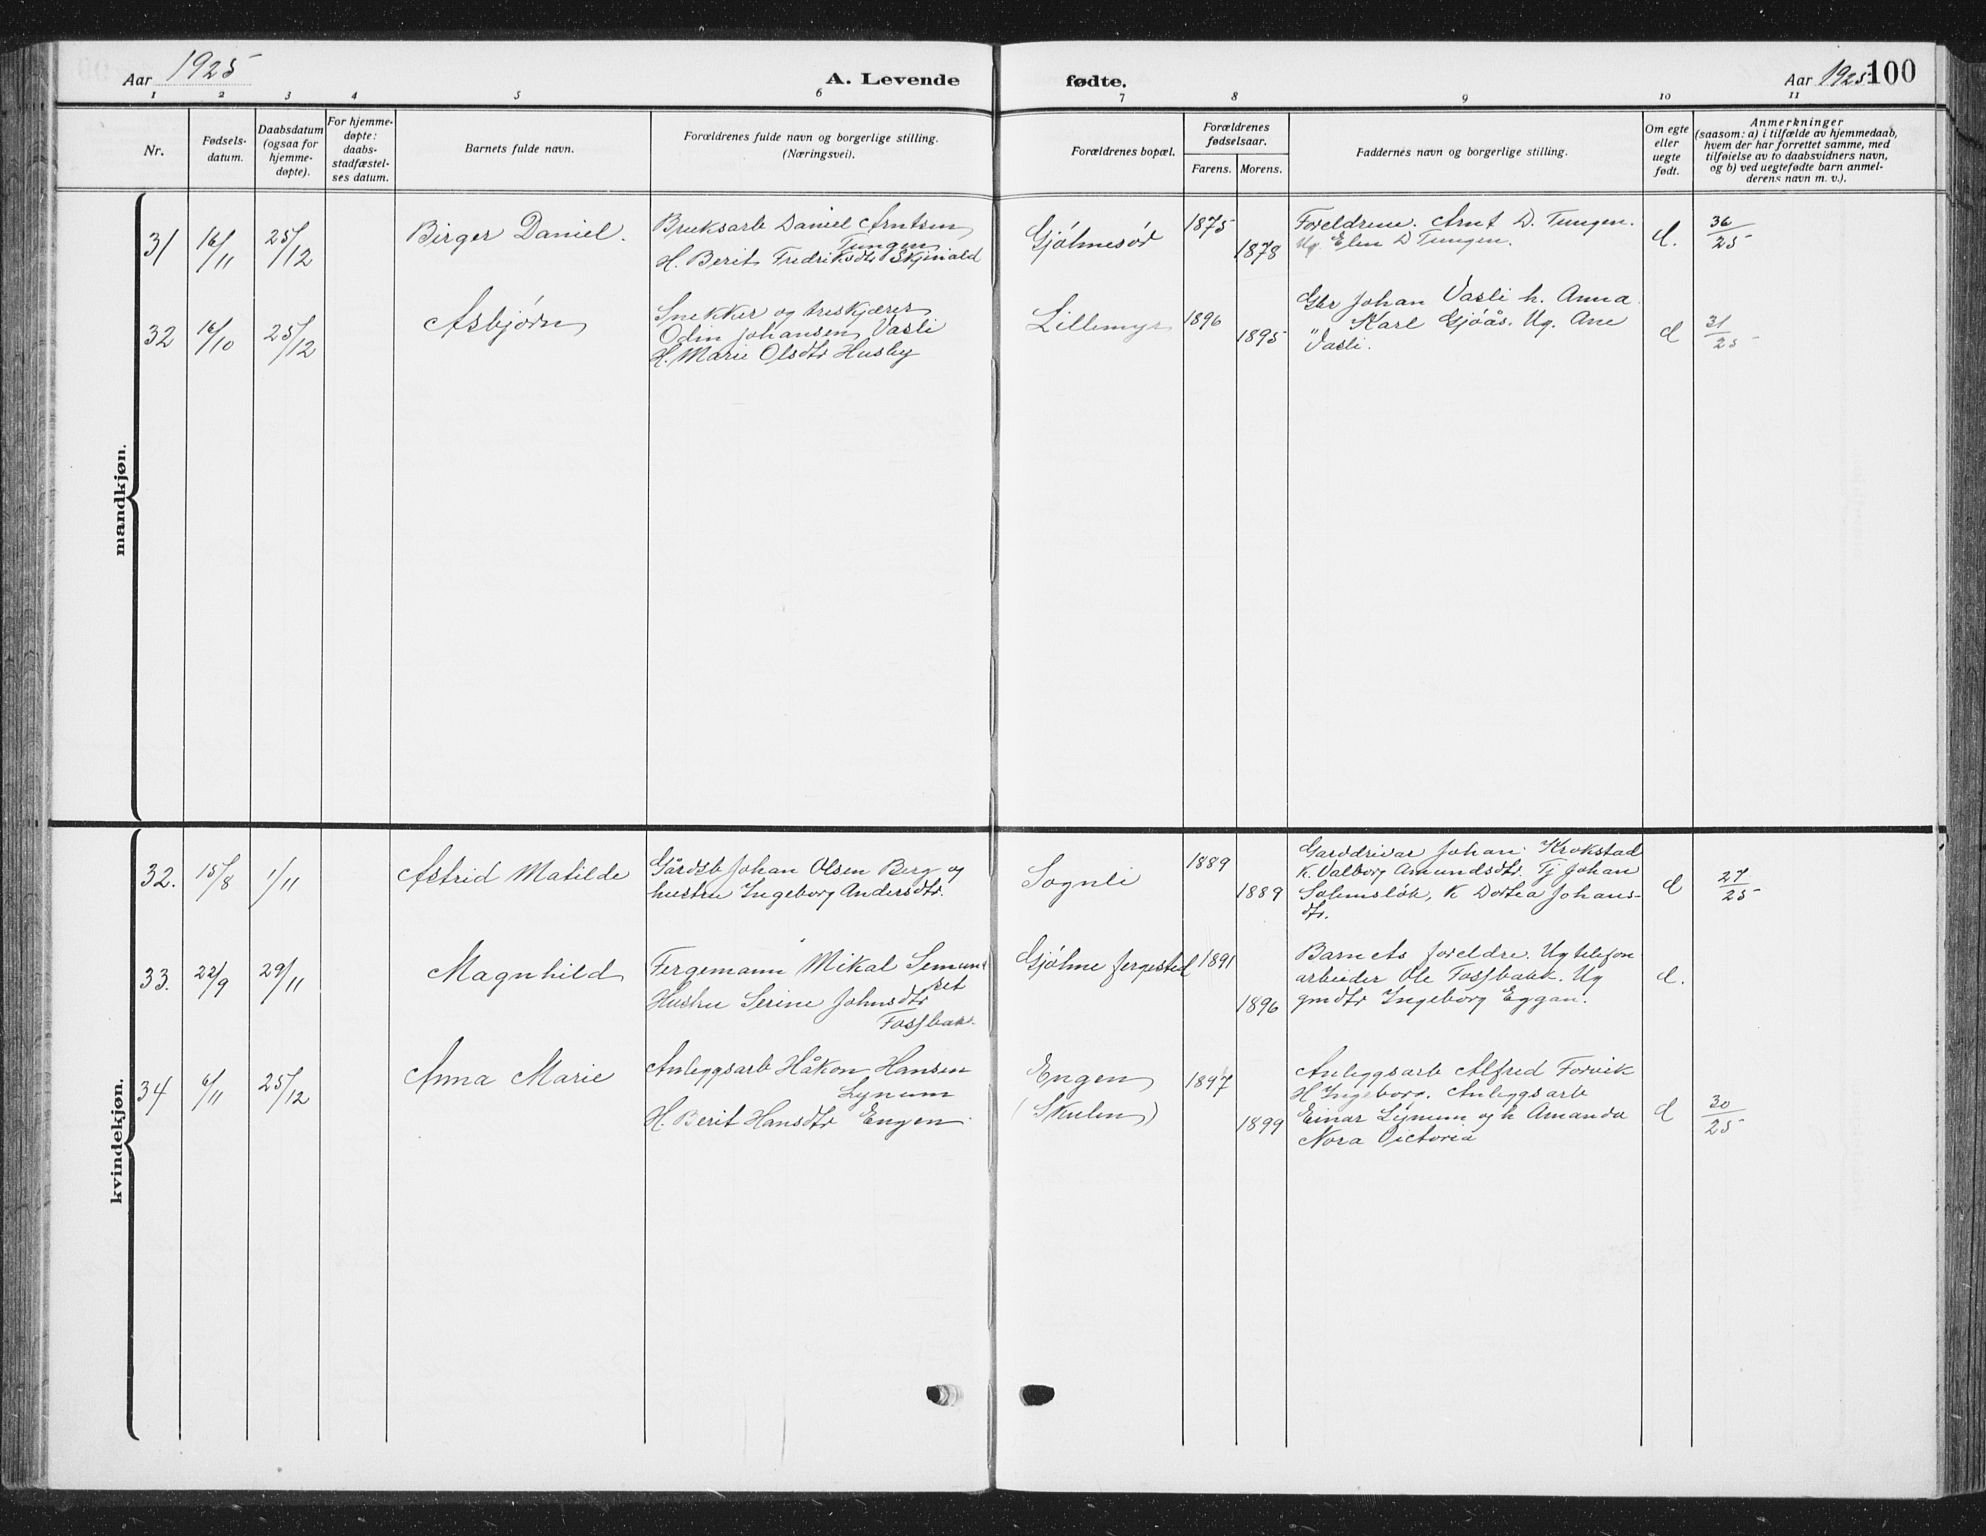 Aar 1925
A. Levende
fødte.
Aar 1925
100
1 2 3 4 5 6 7 8 9 10 11
Nr.
Fødsels-
datum.
Daabsdatum
(ogsaa for
hjemme-
døpte).
For hjemme-
døpte:
daabs-
stadfæstel-
ses datum.
Barnets fulde navn.
Forældrenes fulde navn og borgerlige stilling.
(Næringsvei).
Forældrenes bopæl.
Forældrenes
fødselsaar.
Farens. Morens.
Faddernes navn og borgerlige stilling.
Om egte
eller
uegte
født.
Anmerkninger
(saasom: a) i tilfælde av hjemmedaab,
hvem der har forrettet samme, med
tilføielse av to daabsvidners navn,
og b) ved uegtefødte barn anmel-
derens navn m. v.).
mandkjøn.
31
16/11
25/12
Birger Daniel.
Bruksarb Daniel Arntsen
Tungen
H. Berit Fredriksdtr Skjinald
Gjølmesør
1875
1878
Foreldrene. Arnt D. Tungen.
Ug. Elen D Tungen.
d.
36/25
32
16/10
25/12
Asbjørn
Snekker og treskjærer
Odin Johansen Vasli
H. Marie Olsdtr Husby
Lillemyr
1896
1895
Gbr Johan Vasli h. Anna
" Karl Gjøås. Ug. Ane
Vasli.
d
31/25
kvindekjøn.
32.
15/8
1/11
Astrid Matilde
Gårdsb Johan Olsen Berg og
hustru Ingeborg Andersdtr.
Sognli
1889
1889
Garddrivar Johan Krokstad
K. Valborg Amundsdtr. Tj Johan
Solemsløk, K Dortea Johans-
dtr.
d
27/25
33.
22/9
29/11
Magnhild
Fergemann Mikal Semund
set
Hustru Serine Johnsdtr
Fossbak.
Gjølme fergested
1891
1896
Barnets foreldre. Ug telefon
arbeider Ole Fossbakk. Ug
gmdtr Ingeborg Eggan.
d.
34
6/11
25/12
Anna Marie
Anleggsarb Håkon Hansen
Lynum
H. Berit Hansdtr Engen.
Engen
(Skulen)
1897
1899
Anleggsarb Alfred Forvik
H Ingeborg. Anleggsarb
Einar Lynum og h Amanda
Nora Victoria
d
30/25